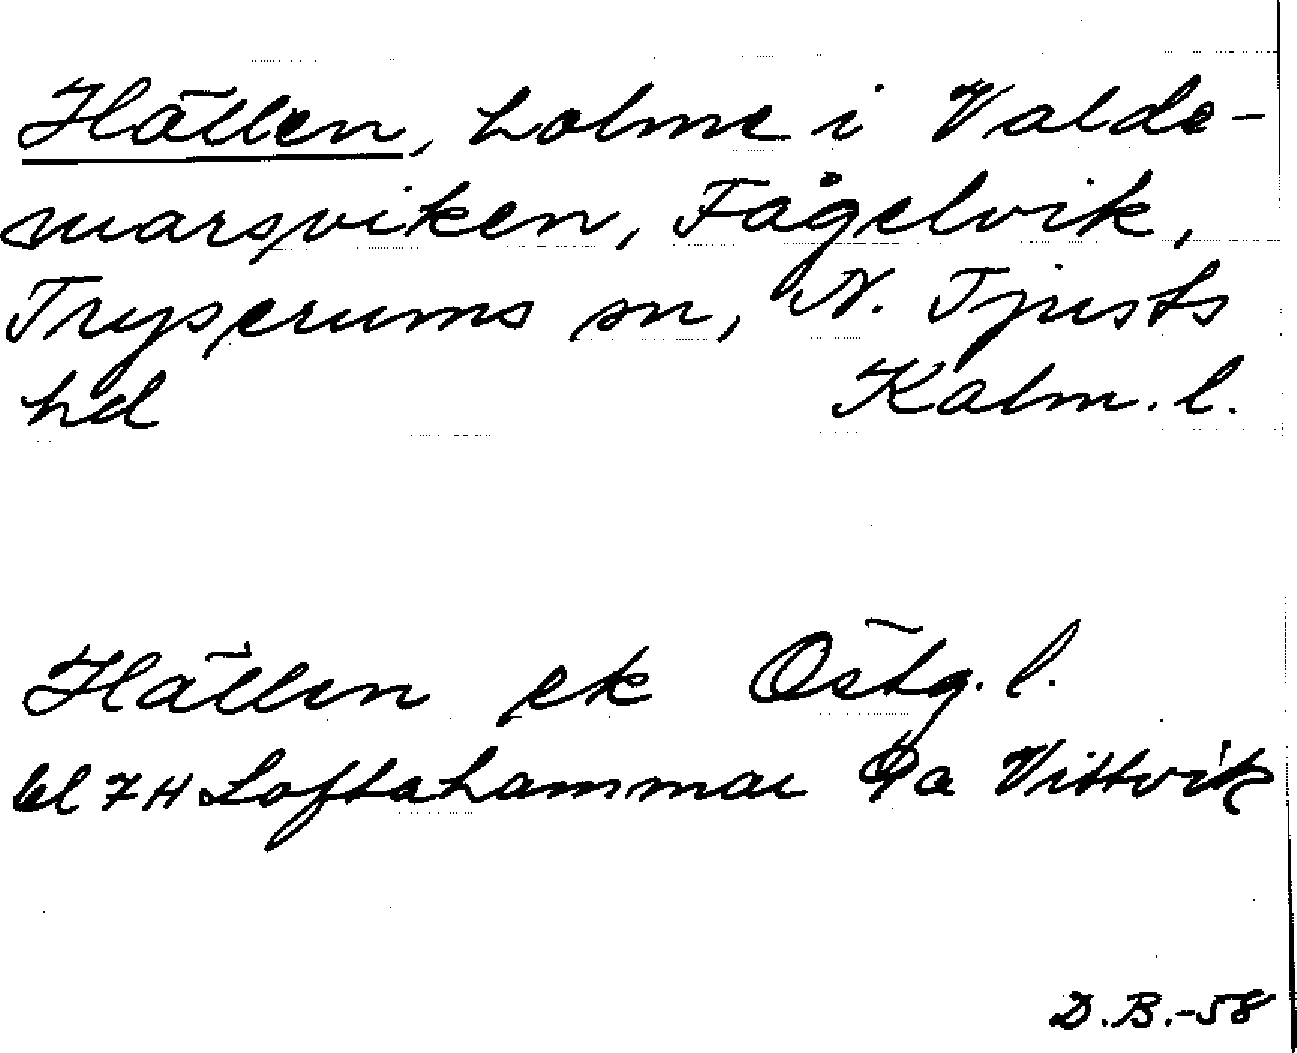 Hällen, holme i Valde-
marsviken, Fågelvik,
Tryserums sn, N. Tjusts
hd Kalm. l.
Hällen ek Östg. l.
bl 7H Loftahammar 9a Vittvik
D.B.-58